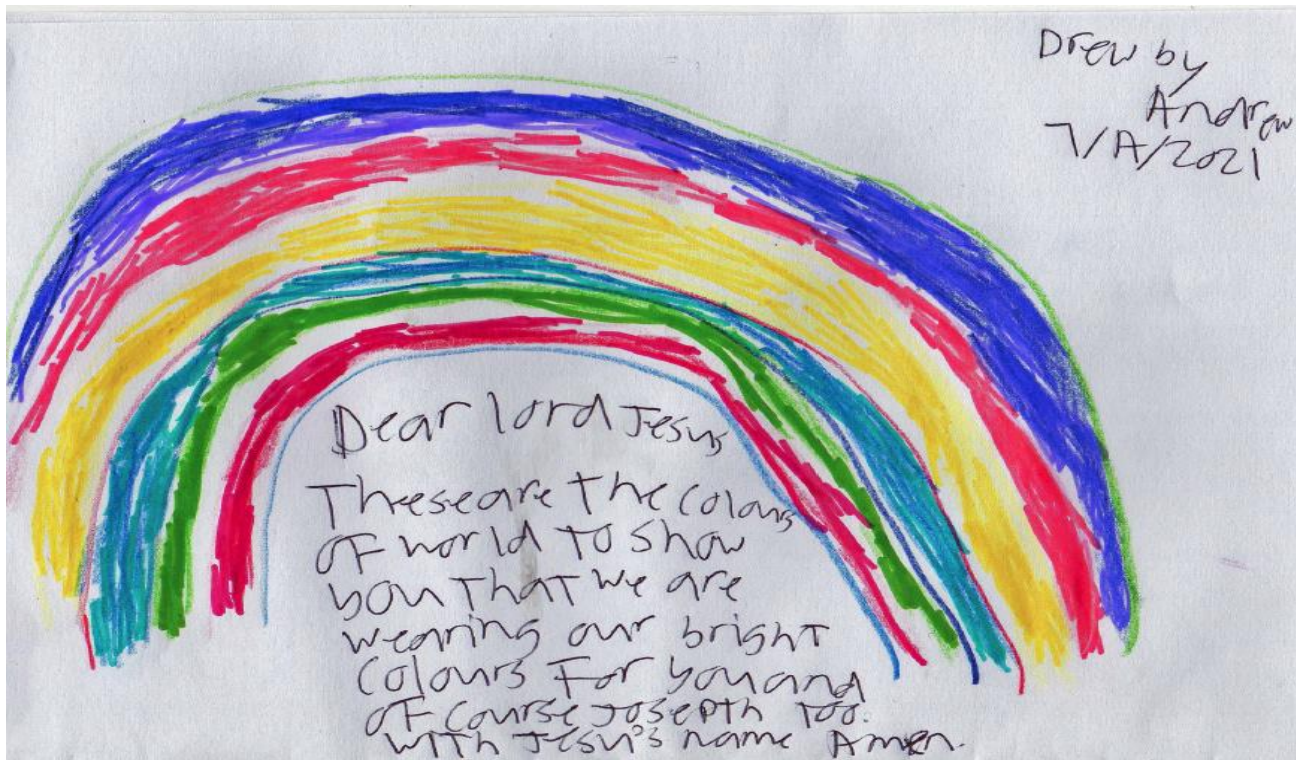 Drew by
Andrew
7/A/2021
Dear lord Jesus
These are the colours
of world to show
you that we are
wearing our bright
colours for you and
of course Josepth too.
with Jesu's name Amen.